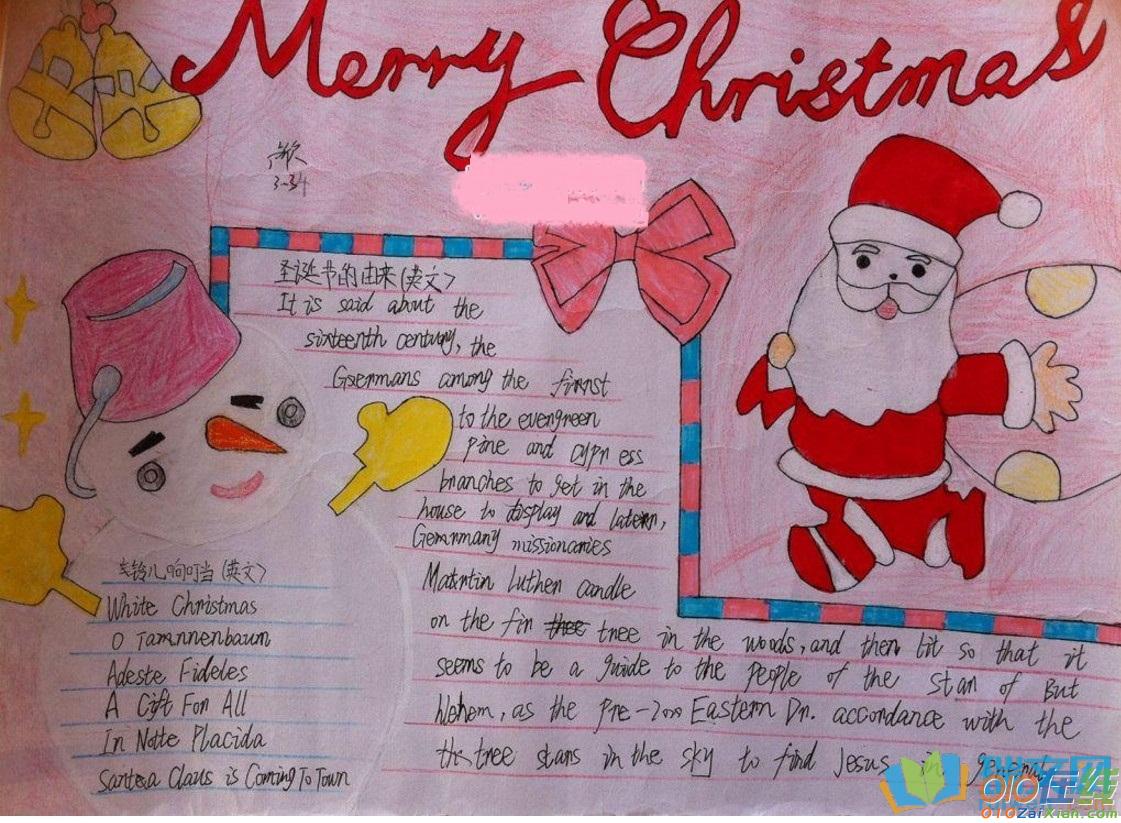 Merry Christmas
3-34
圣诞节的由来(英文)
It is said about the
sixteenth century, the
Gsermans among the firnst
to the evengreen
pine and cypress
branches to get in the
house to display and latern,
Gemrmany missionaries
Matrtin Luthen candle
on the fin thee tree in the woods, and then lit so that it
seems to be a guide to the people of the stan of But
as the pre-2000 Eastern Dn. accordance with the
tree stans in the sky to find Jesus in general
铃儿响叮当(英文)
White Christmas
O Tamnnenbaum
Adeste Fideles
A Gift For All
In Notte Placida
Santesa Claus is Coming To Town
010在线
010ZaiXian.com